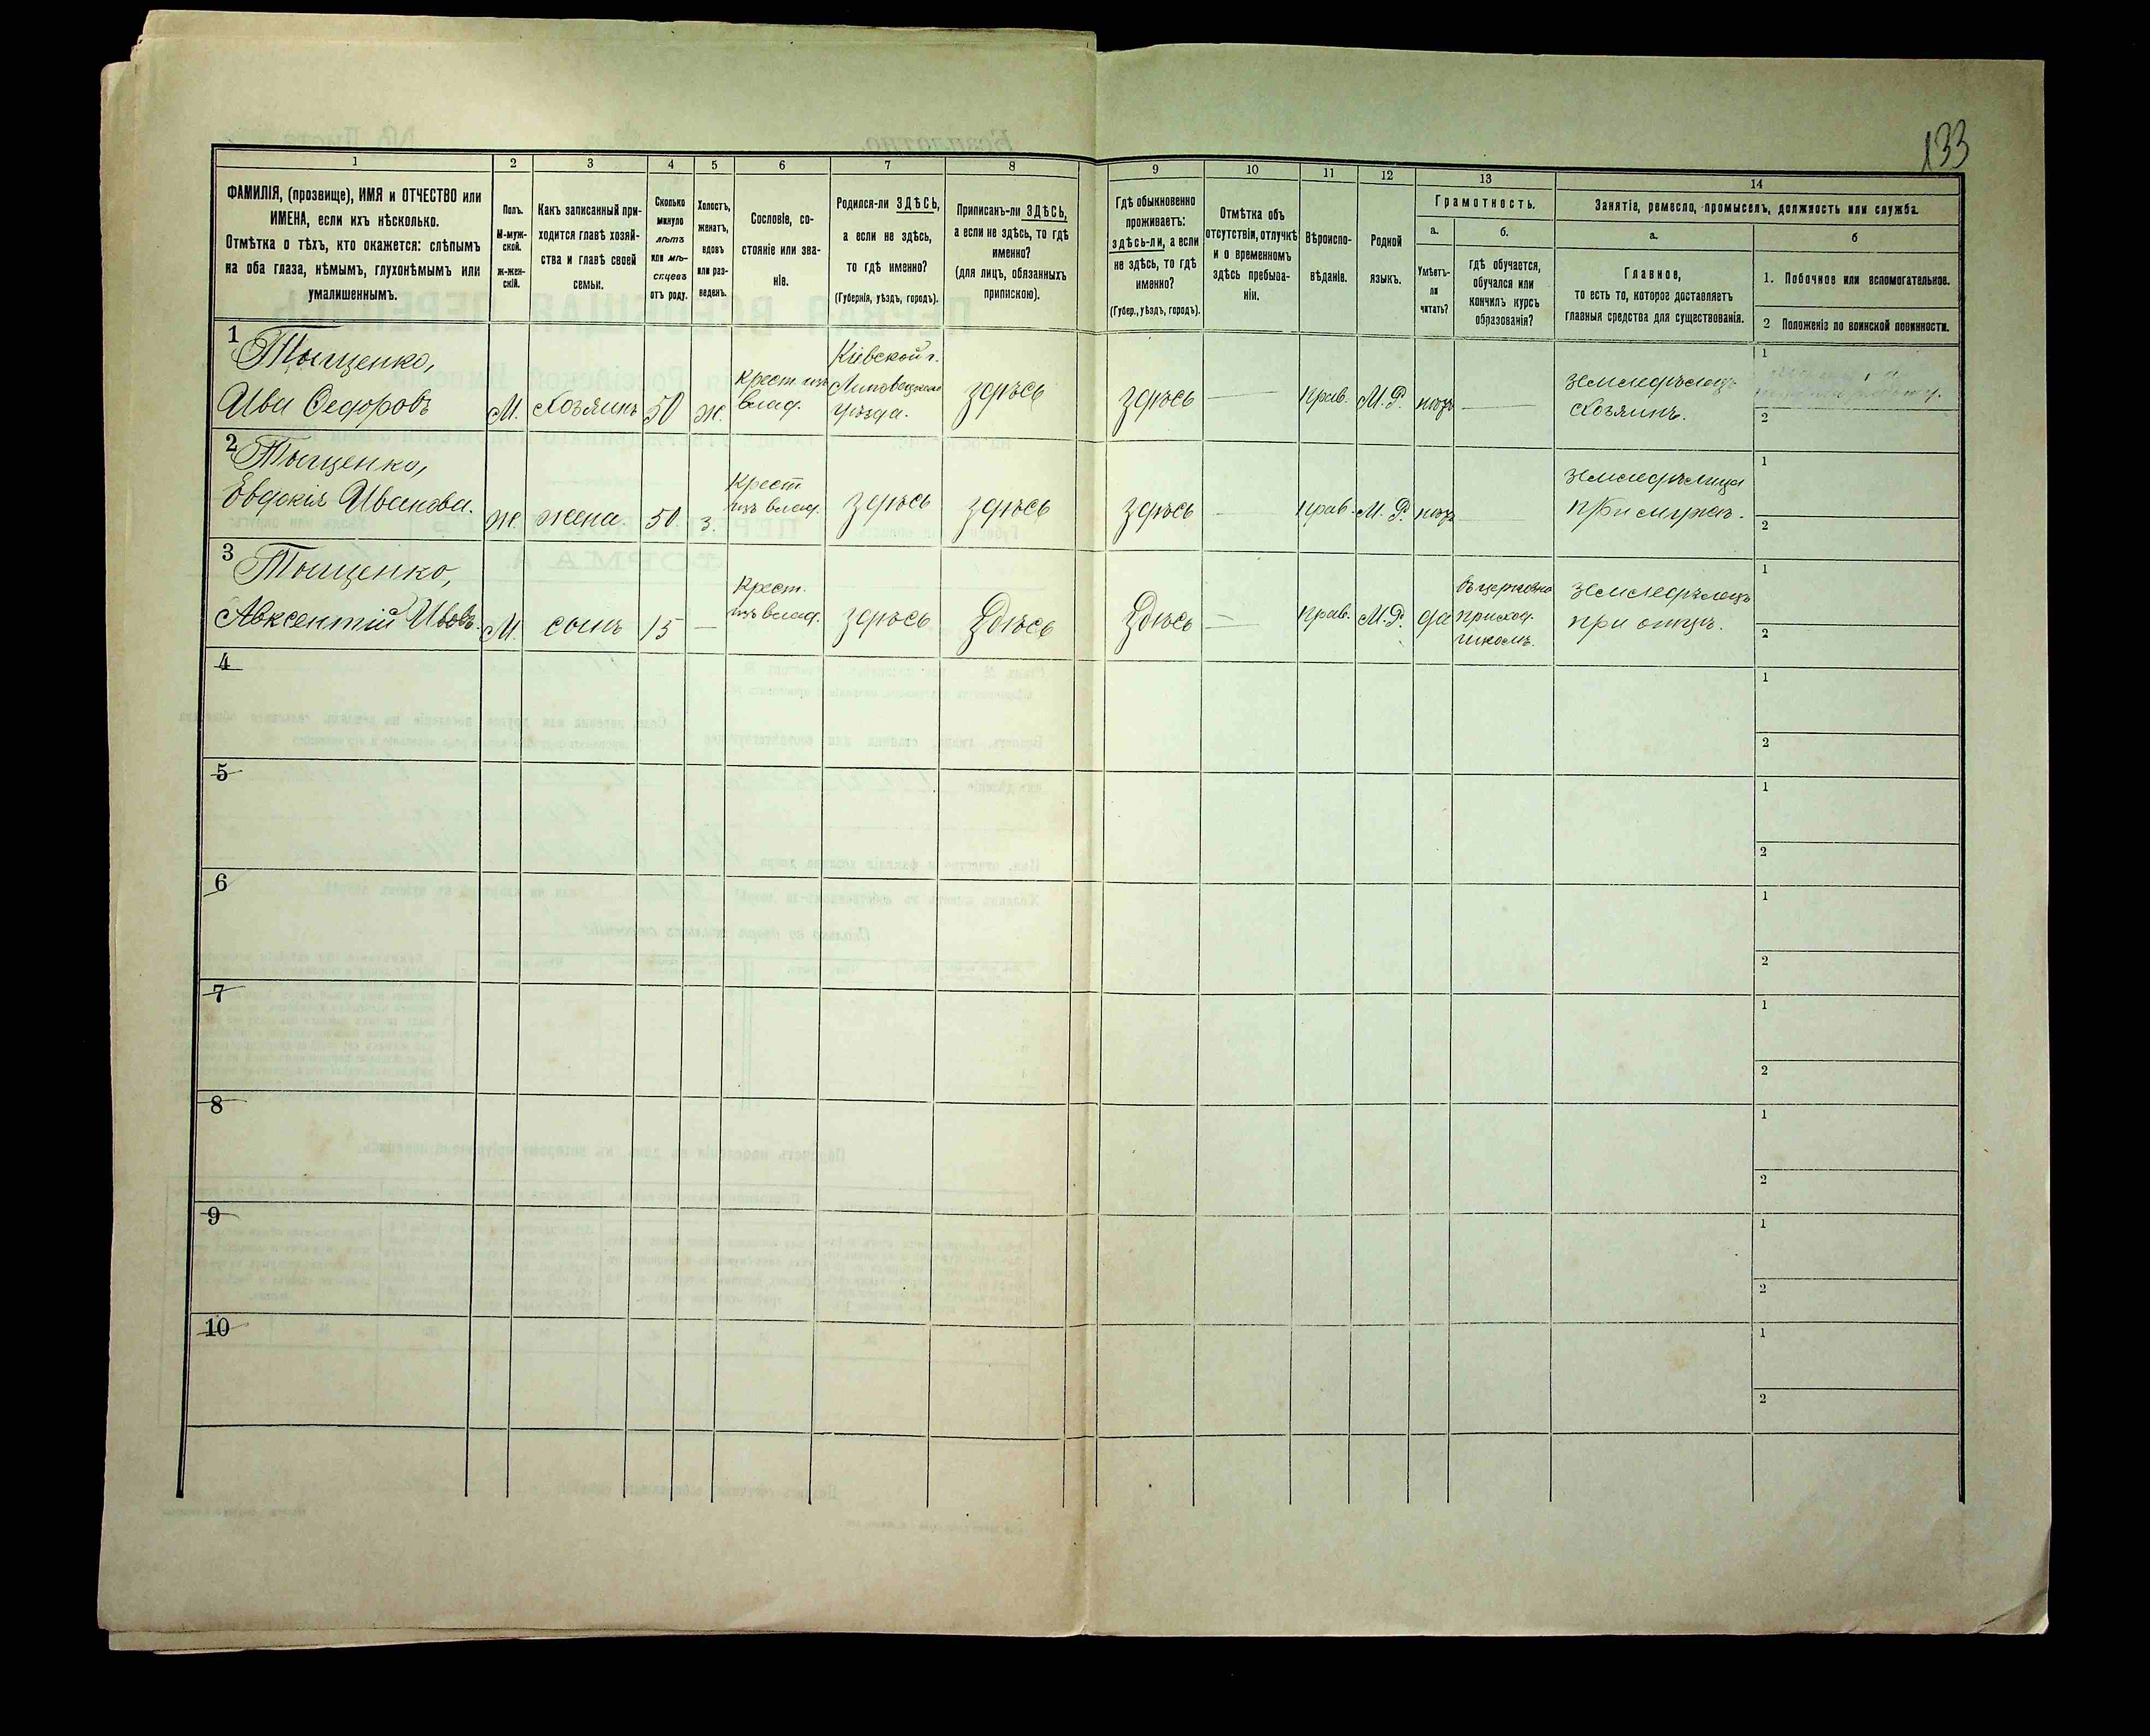 133
1
2
3
4
5
6
7
8
9
10
11
12
13
14
ФАМИЛІЯ, (прозвище), ИМЯ и ОТЧЕСТВО или
ИМЕНА, если ихъ нѣсколько.
Отмѣтка о тѣхъ, кто окажется: слѣпымъ
на оба глаза, нѣмымъ, глухонѣмымъ или
умалишеннымъ.
Полъ.
М-муж-
ской.
ж-жен-
скій.
Какъ записанный при-
ходится главѣ хозяй-
ства и главѣ своей
семьи.
Сколько
минуло
лѣтъ
или мѣ-
сяцевъ
отъ роду.
Холостъ,
женатъ,
вдовъ
или раз-
веденъ.
Сословіе, со-
стояніе или зва-
ніе.
Родился-ли ЗДѢСЬ,
а если не здѣсь,
то гдѣ именно?
(Губернія, уѣздъ, городъ).
Приписанъ-ли ЗДѢСЬ,
а если не здѣсь, то гдѣ
именно?
(для лицъ, обязанныхъ
припискою).
Гдѣ обыкновенно
проживаетъ:
здѣсь-ли, а если
не здѣсь, то гдѣ
именно?
(Губер., уѣздъ, городъ).
Отмѣтка объ
отсутствіи, отлучкѣ
и о временномъ
здѣсь пребыва-
ніи.
Вѣроиспо-
вѣданіе.
Родной
языкъ.
Грамотность.
а.
Умѣетъ-
ли
читать?
б.
гдѣ обучается,
обучался или
кончилъ курсъ
образованія?
Занятіе, ремесло, промыселъ, должность или служба.
а.
Главное,
то есть то, которое доставляетъ
главныя средства для существованія.
б
1. Побочное или вспомогательное.
2 Положеніе по воинской повинности.
1
Тыщенко,
Ивъ Федоровъ
М.
Хозяинъ
50
ж.
Крест. изъ
влад.
Кіевской г.
Липовецкаго
уѣзда.
здѣсь
здѣсь
Прав.
М.Р.
нѣтъ
земледѣлецъ
хозяинъ.
1
2
2
Тыщенко,
Евдокія Иванова.
Ж.
жена.
50.
з.
Крест
изъ влад.
здѣсь
здѣсь
здѣсь
Прав.
М.Р.
нѣтъ
земледѣлица
при мужѣ.
1
2
3
Тыщенко,
Авксентій Ивовъ.
М.
сынъ
15
—
Крест.
изъ влад.
здѣсь
Здѣсь
Здѣсь
—
Прав.
М.Р.
да
въ церковно
приход.
школѣ.
земледѣлецъ
при отцѣ.
1
2
4
1
2
5
1
2
6
1
2
7
1
2
8
1
2
9
1
2
10
1
2